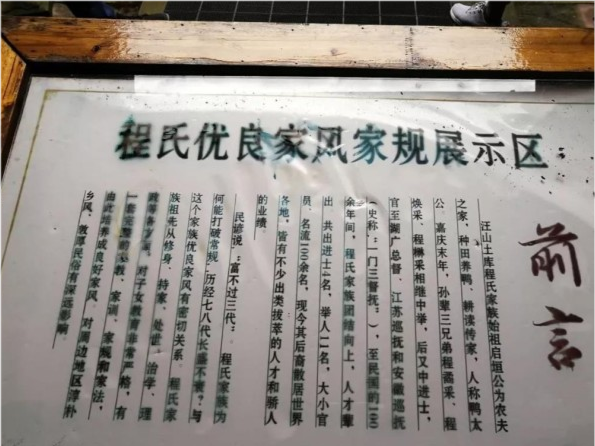 程氏优良家风家规展示区
前言
汪山土库程氏家族始祖启垣公为农夫
之家，种田养鸭、耕渎传家，人称鸭太
公，嘉庆末年，孙辈三兄弟程矞采、程
焕采、程楙采相继中举，后又中进士，
官至湖广总督、江苏巡抚和安徽巡抚
（史称“一门三督抚”），至民国的100
余年间，程氏家族团结向上，人才辈
出，共出进士4名，举人11名，大小官
员、名流100余名，现今其后裔散居世界
各地，皆有不少出类拔萃的人才和骄人
的业绩
民谚说：“富不过三代”。程氏家族为
何能打破常规，历经七八代长盛不衰？与
这个家族优良家风有密切关系。程氏家
族祖先从修身、持家、处世、治学、理
政等各方面，对子女教育非常严格，有
一套完整的家教、家训、家规和家法，
由此培养成良好家风。对周边地区淳朴
乡风、敦厚民俗有深远影响